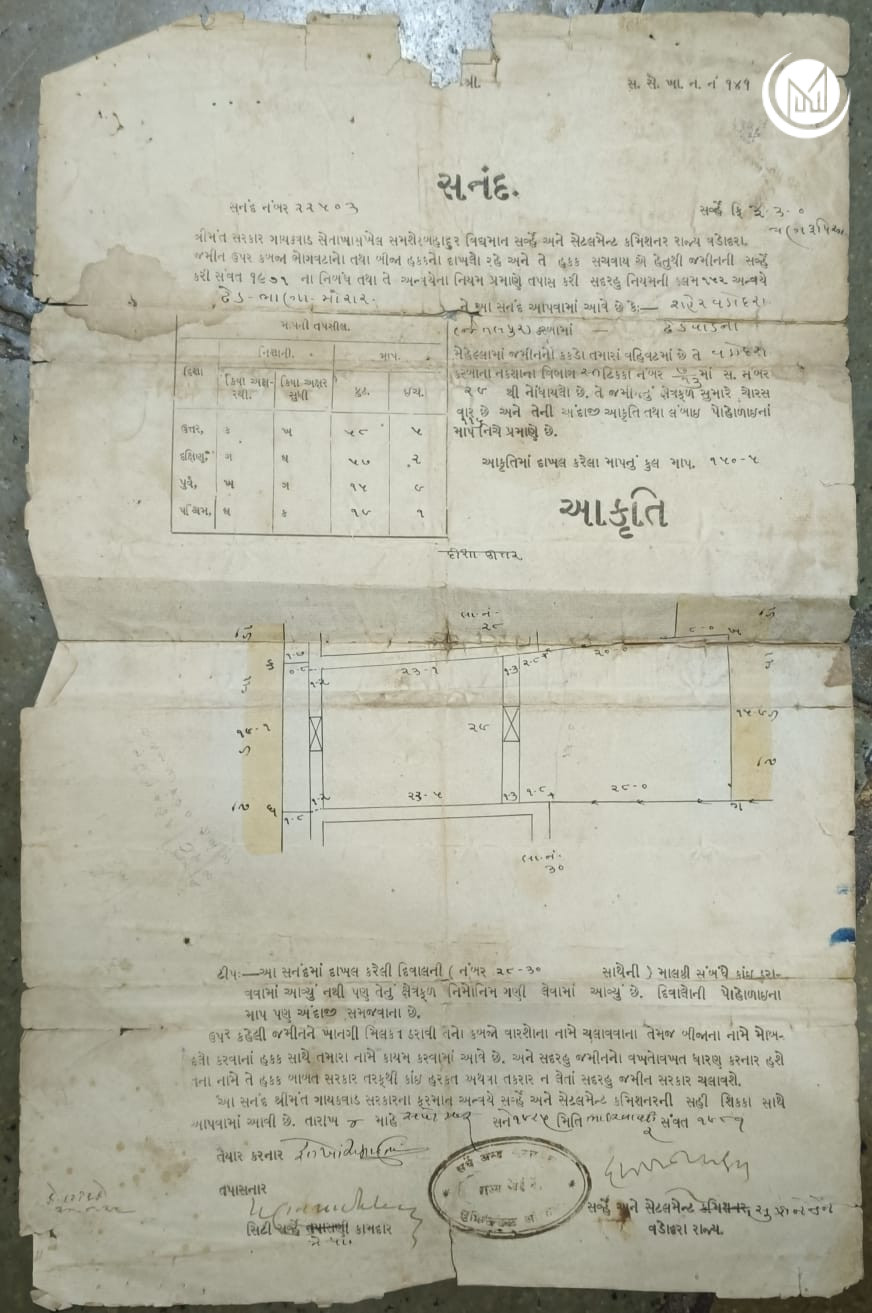 શ્રી.
સ. સે. ખા. ન. નં ૧૪૧
સનંદ.
સનંદ નંબર ૨૨૫૦૩
સર્વ્હે ફિ રૂ. ૩-૦
ત્રણ રૂપિયા
શ્રીમંત સરકાર ગાયકવાડ સેનાખાસખેલ સમશેરબહાદુર વિદ્યમાન સર્વ્હે અને સેટલમેન્ટ કમિશનર રાજ્ય વડોદરા.
જમીન ઉપર કબજા ભોગવટાનો તથા બીજા હક્કનો દાખલો રહે અને તે હક્ક સચવાય એ હેતુથી જમીનની સર્વ્હે
કરી સંવત ૧૯૭૧ ના નિબંધ તથા તે અન્વયેના નિયમ પ્રમાણે તપાસ કરી સદરહુ નિયમની કલમ ૫૨ અન્વયે
ઢેડ-ભાણા-મોરાર.
ને આ સનંદ આપવામાં આવે છે કે:— શહેર વડોદરા
ફળામાં — ઢેડવાડાના
મોહોલ્લામાં જમીનનો કકડો તમારા વહિવટમાં છે તે વડોદરા
કસબાના નકશાના વિભાગ ટિકકા નંબર માં સ. નંબર
૨૯ થી નોંધાયલો છે. તે જમીનનું ક્ષેત્રફળ સુમારે ચોરસ
વાર છે અને તેની અંદાજી આકૃતિ તથા લંબાઇ પોહોળાઇનાં
માપ નિચે પ્રમાણે છે.
માપની તપસીલ.
દિશા
નિશાની.
માપ.
કિયા અક્ષ-રથી.
કિયા અક્ષર સુધી
ફુટ.
ઇંચ.
ઉત્તર, ક ખ ૫૮ ૫
દક્ષિણ, ગ ઘ ૫૭ ૨
પુર્વ, ખ ગ ૧૫ ૯
પશ્ચિમ, ઘ ક ૧૯ ૧
આકૃતિમાં દાખલ કરેલા માપનું કુલ માપ. ૧૫૦-૫
આકૃતિ
દીશા ઉત્તર
લા.નં-
૨૮
૮-૦
ખ
ક
૧-૭
૦-૮
૧-૨
૨૩-૧
૧-૩
૨-૮
૨૦-૦
૧૯-૧
૨૯
૧૫-૯
૧-૨
૨૩-૫
૧-૩
૧-૮
૨૮-૦
ઘ
૧-૮
ગ
લા.નં-
૩૦
ટીપ:—આ સનંદમાં દાખલ કરેલી દિવાલની ( નંબર ૨૮-૩૦ સાથેની ) માલકી સંબંધે કાંઇ ઠરા-
વવામાં આવ્યું નથી પણ તેનું ક્ષેત્રફળ નિમોનિમ ગણી લેવામાં આવ્યું છે. દિવાલોની પોહોળાઇના
માપ પણ અંદાજી સમજવાના છે.
ઉપર કહેલી જમીનને ખાનગી મિલકત ઠરાવી તેનો કબજો વારશોના નામે ચલાવવાના તેમજ બીજાના નામે મોબ-
દલો કરવાનાં હક્ક સાથે તમારા નામે કાયમ કરવામાં આવે છે. અને સદરહુ જમીનનો વખતોવખત ધારણ કરનાર હશે
તેના નામે તે હક્ક બાબત સરકાર તરફથી કાંઇ હરકત અથવા તકરાર ન લેતાં સદરહુ જમીન સરકાર ચલાવશે.
આ સનંદ શ્રીમંત ગાયકવાડ સરકારના ફરમાન અન્વયે સર્વ્હે અને સેટલમેન્ટ કમિશનરની સહી શિકકા સાથે
આપવામાં આવી છે. તારીખ ૪ માહે સને ૧૯૨૫ મિતિ સંવત ૧૯૮૧
તૈયાર કરનાર
તપાસનાર
સિટી સર્વ્હે તપાસણી કામદાર
સર્વ્હે અને સેટલમેન્ટ કમિશનર
વડોદરા રાજ્ય.